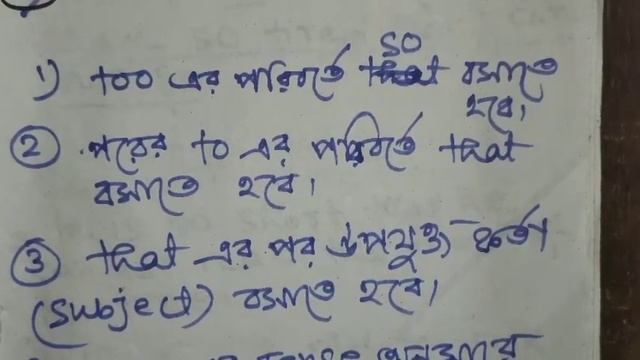 so
১) too এর পরিবর্তে বসাতে
হবে।
② পরের to এর পরিবর্তে that
বসাতে হবে।
③ that এর পর উপযুক্ত কর্তা
(subject) বসাতে হবে।
tense অনুসারে